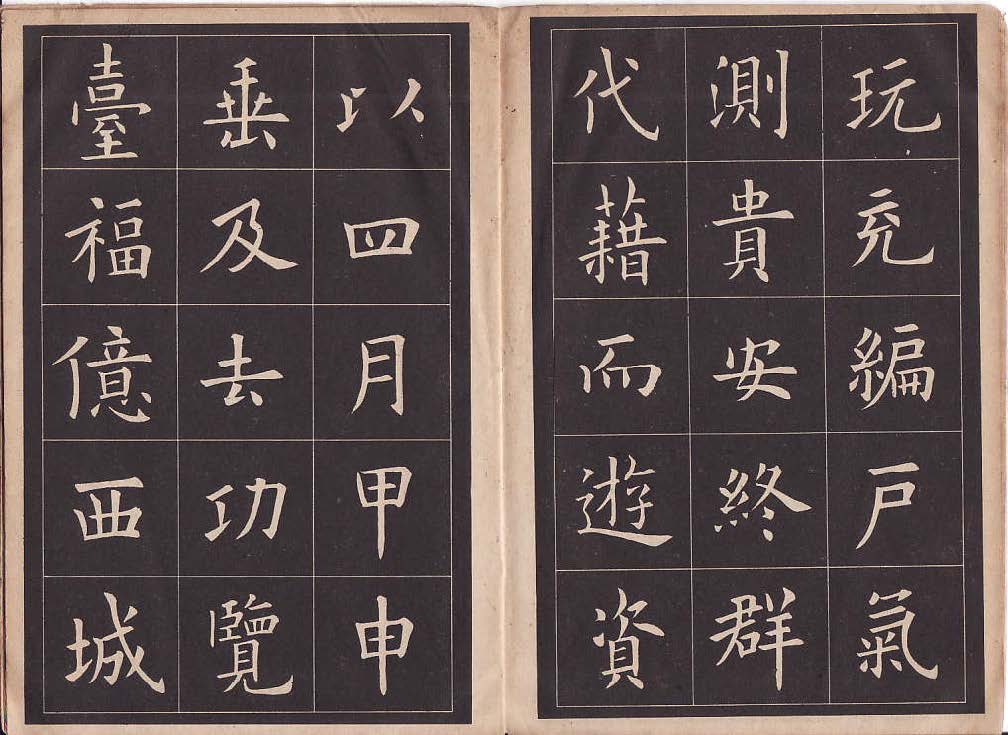 玩充編戶氣
測貴安終群
代藉而遊資
以四月甲申
垂及去功覽
臺福億西城